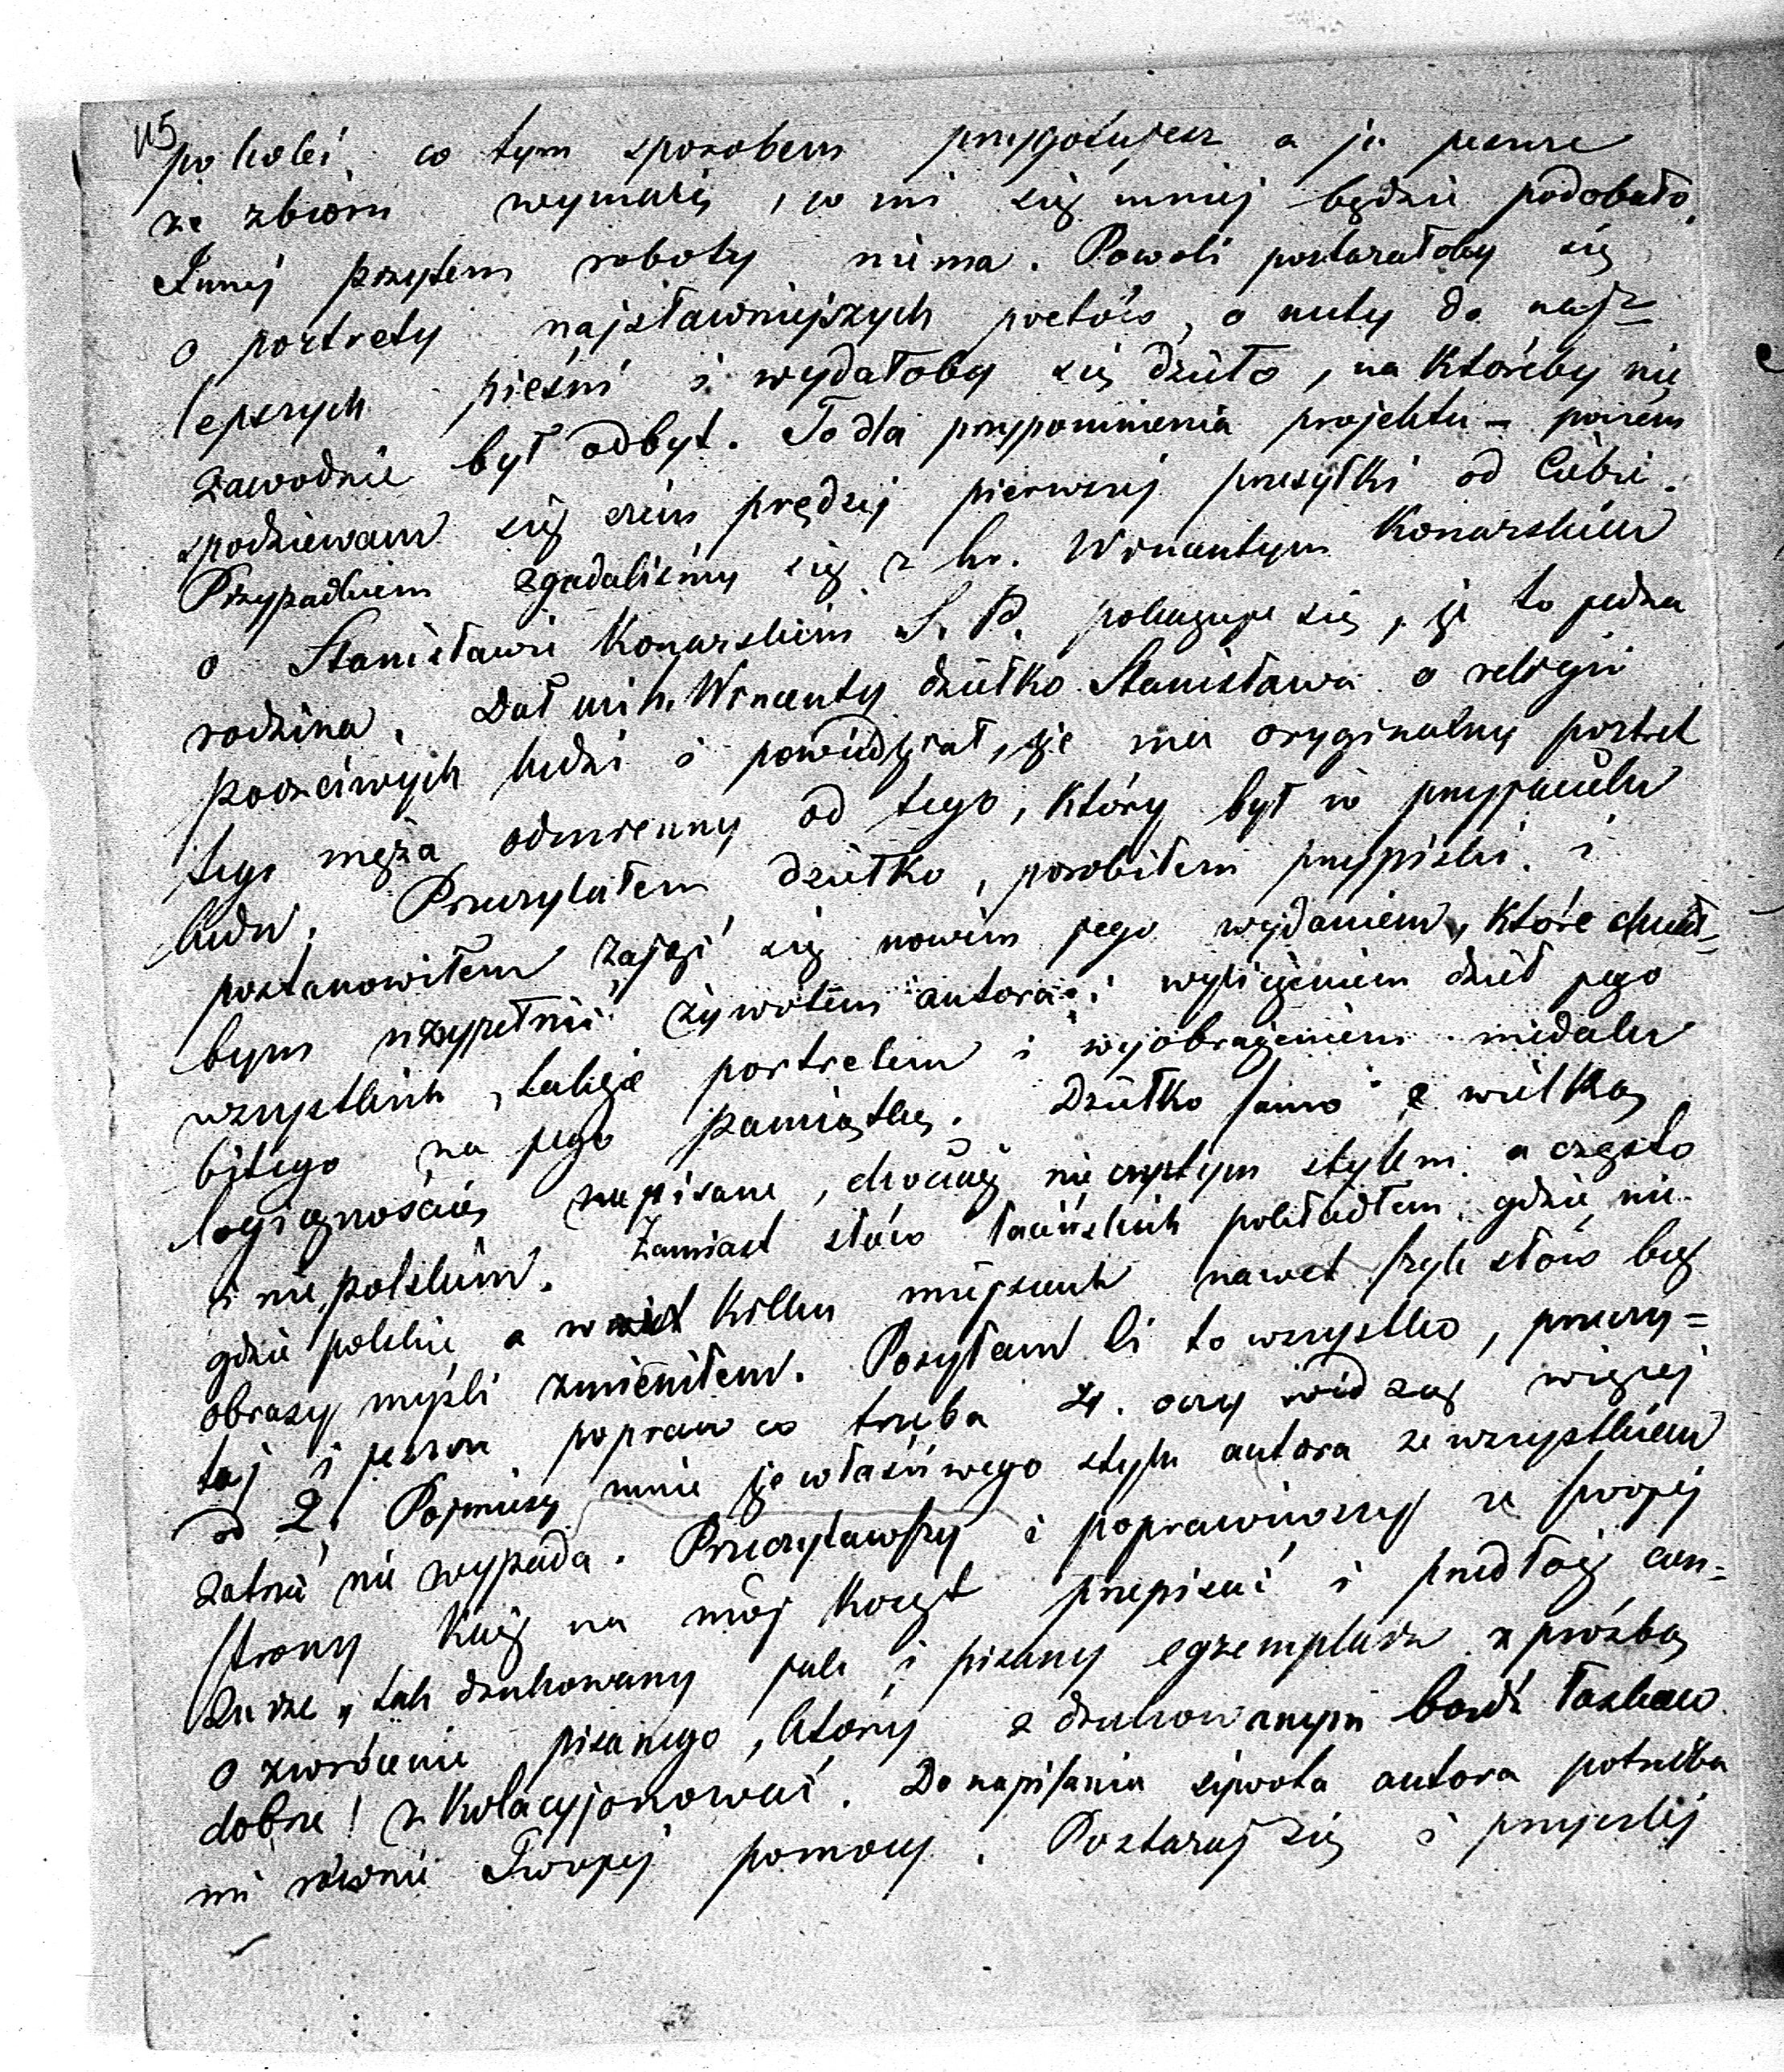 115
po kolei co tym sposobem przygotujesz a ja jeszcze
ze zbioru wymażę, co mi się mniej będzie podobało.
Innej przytem roboty niema. Powoli postarałoby się
o portrety najsławniejszych poetów, o nuty do naj=
lepszych pieśni i wydałoby się dzieło, na któreby nie
zawodnie był odbyt. To dla przypomnienia projektu – poczém
spodziewam się czém prędzej pierwszej przesyłki od Ciebie.
Przypadkiem zgadaliśmy się z hr. Wincentym Konarskim
o Stanisławie Konarskim S. P. pokazuje się, że to jedna
rodzina. Dał mi h. Wincenty dziełko Stanisława o religii
poczciwych ludzi i powiedział, że ma oryginalny portret
tego męża odmienny od tego, który był w przyjacielu
ludu. Przeczytałem dziełko, porobiłem przypiski i
postanowiłem zająć się nowém jego wydaniem, które chciał=
bym uzupełnić żywotem autora i wyliczeniem dzieł jego
wszystkich, także portretem i wyobrażeniem medalu
bitego na jego pamiątkę. Dziełko samo z wielką
logicznością napisane, chociaż nie czystym stylem a często
i nie polskim. Zamiast słów łacińskich pokładłem gdzie nie
gdzie polskie a w kilku miejscach nawet szyk słów bez
obrazy myśli zmieniłem. Posyłam Ci to wszystko, przeczy=
taj i jeszcze popraw co trzeba 4. oczy widzą więcej
od 2. Pojmiesz mnie że właściwego stylu autora ze wszystkiem
zatrzeć nie wypada. Przeczytawszy i poprawiwszy ze swojej
strony każ na mój koszt przepisać i przedłóż cen=
zurze, tak drukowany jak i pisany egzemplarz z prośbą
o zwrócenie pisanego, który z drukowanym bądź łaskaw
dobrze! zkolacyjonować. Do napisania żywota autora potrzeba
mi równie Twojej pomocy. Postaraj się i przyszlij